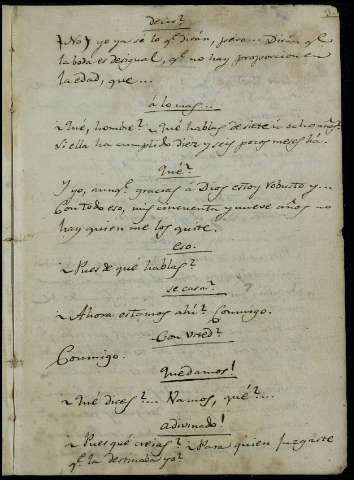 decir?
(No) yo ya se lo q.e dirán, pero... Dirán q.e
la boda es desigual, q.e no hay proporcion en
la edad, que...
á lo mas...
¿Qué, hombre? ¿Qué hablas de siete ú ocho años?
Si ella ha cumplido diez y seis pocos meses há.
Qué?
Y yo, aunq.e gracias á Dios estoy robusto y...
Con todo eso, mis cincuenta y nueve años no
hay quien me los quite.
eso.
¿Pues de qué hablas?
se casa?
¿Ahora estamos ahi? Conmigo.
Con Vmd?
Conmigo.
Quedamos!
¿Qué dices?... Vamos, qué?...
adivinado!
¿Pues qué creias? ¿Para quien juzgaste
q.e la destinaba yo?